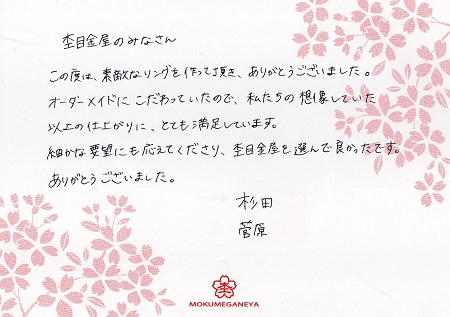 杢目金屋のみなさん
この度は、素敵なリングを作って頂き、ありがとうございました。
オーダーメイドにこだわっていたので、私たちの想像していた
以上の仕上がりに、とても満足しています。
細かな要望にも応えてくださり、杢目金屋を選んで良かったです。
ありがとうございました。
杉田
菅原
杢
MOKUMEGANEYA